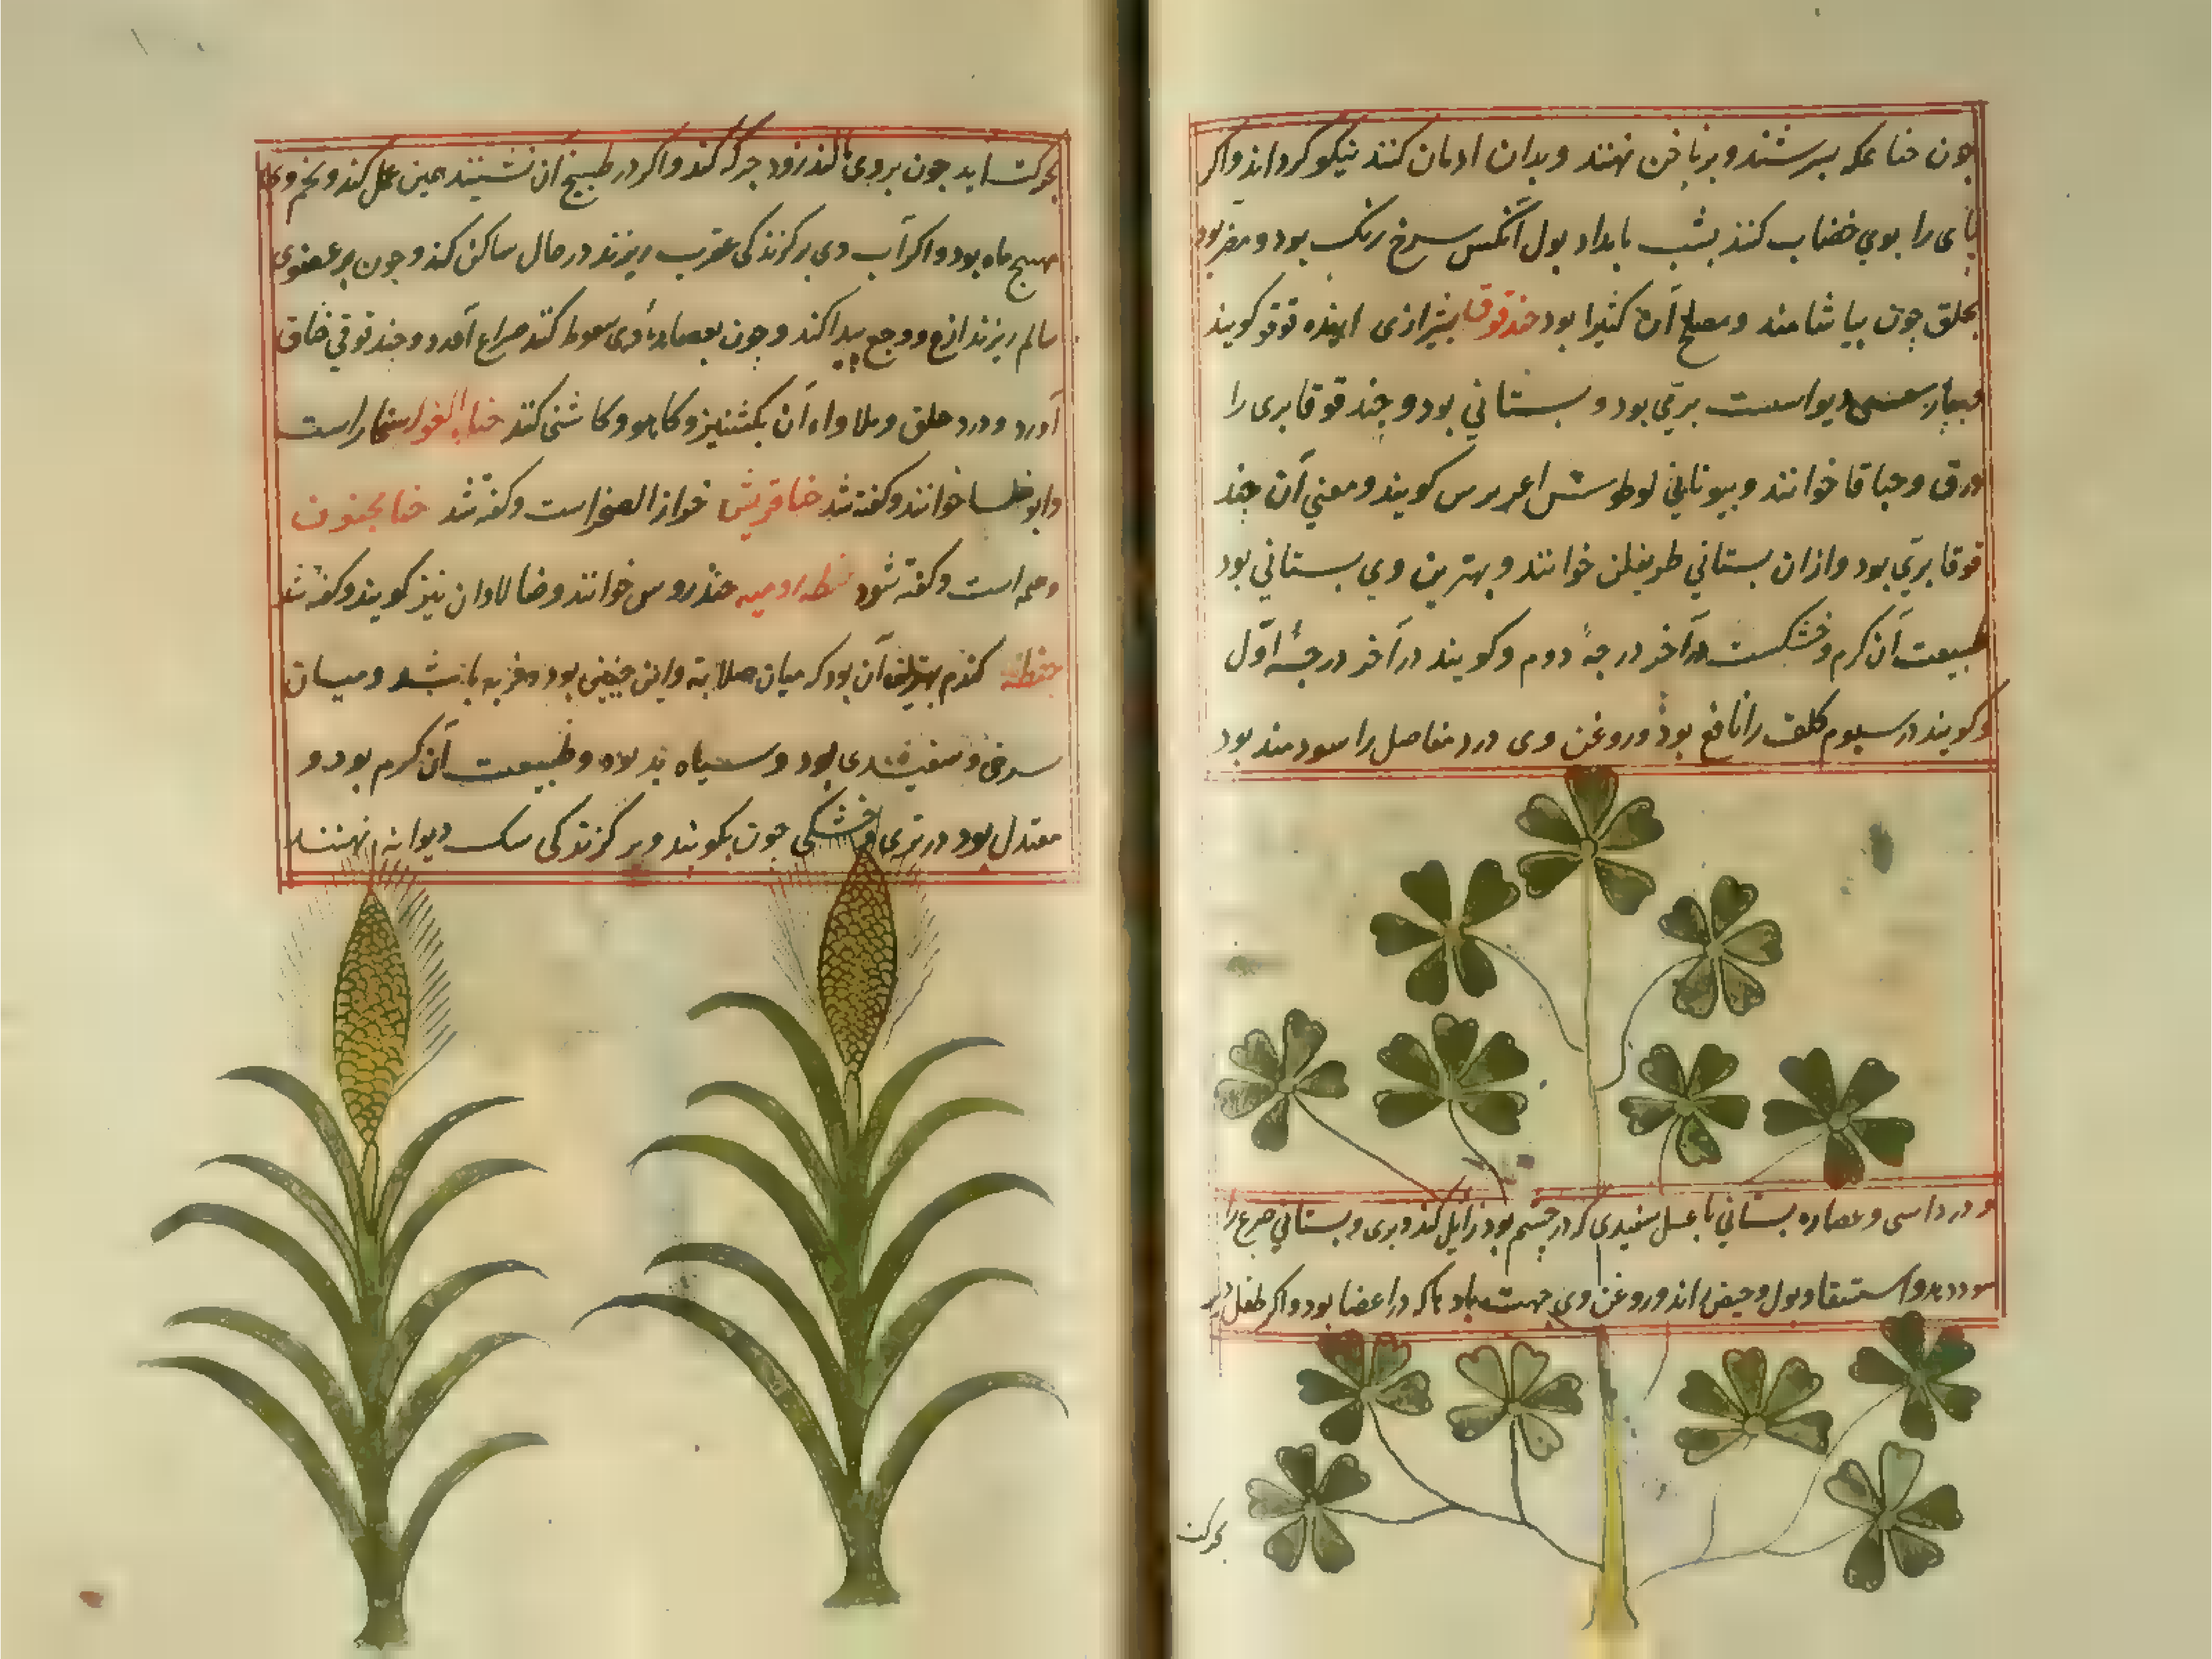 چون حنا بسرشند و بر ناخن نهند و بدان ادمان کنند نیکو کرداند و اکر
پای را بوی خضاب کنند بشب بامداد بول آنکس سرخ رنک بود و مضر بود
بحلق چون بیاشامند و مصلح آن کثیرا بود حندقوقا بشیرازی انده قوقو کویند
است بری بود و بستانی بود و حندقوقا بری را
ذرق و حباقا خوانند و بیونانی لوطوس کویند و معنی آن حند
قوقا بری بود و ازان بستانی طریفلن خوانند و بهترین وی بستانی بود
طبیعت آن کرم و خشکست در آخر درجهٔ دوم و کویند در آخر درجهٔ اول
و کویند در سیوم کلف را نافع بود و روغن وی درد مفاصل را سودمند بود
و عصاره بستانی با عسل سفیدی که در چشم بود زایل کند و بری و بستانی صرع را
سود دهد و استسقا و بول و حیض براند و روغن وی جهت بادها که در اعضا بود و اکر طفل دیر
بحرکت
بحرکت آید چون بروی مالند زود حرکه کند و اکر در طبیخ آن نشیند همین عمل کند و تخم وی
مهیج باه بود و اکر آب وی بر کزندکی عقرب ریزند در حال ساکن کند و چون بر عضوی
سالم ریزند و وجع پیدا کند و چون بعصاره وی سعوط کنند صرع آورد و حندقوقی خناق
آورد و درد حلق و مداواه آن بکشنیز و کاهو و کاسنی کنند حنا الغوله شنجار است
و ابوخلسا خوانند و کفته شد حنا قریش حزاز الصخر است و کفته شد حنا مجنون
وسمه است و کفته شود حنطه رومیه خندروس خوانند و خالاون نیز کویند و کفته شد
حنطه کندم بهترین آن بود که میان صلابة و لین بود و فربه باشد و میان
سرخی و سفیدی بود و سیاه بد بود و طبیعت آن کرم بود و
معتدل بود در تری و خشکی چون بکوبند و بر کزندکی سک دیوانه نهند